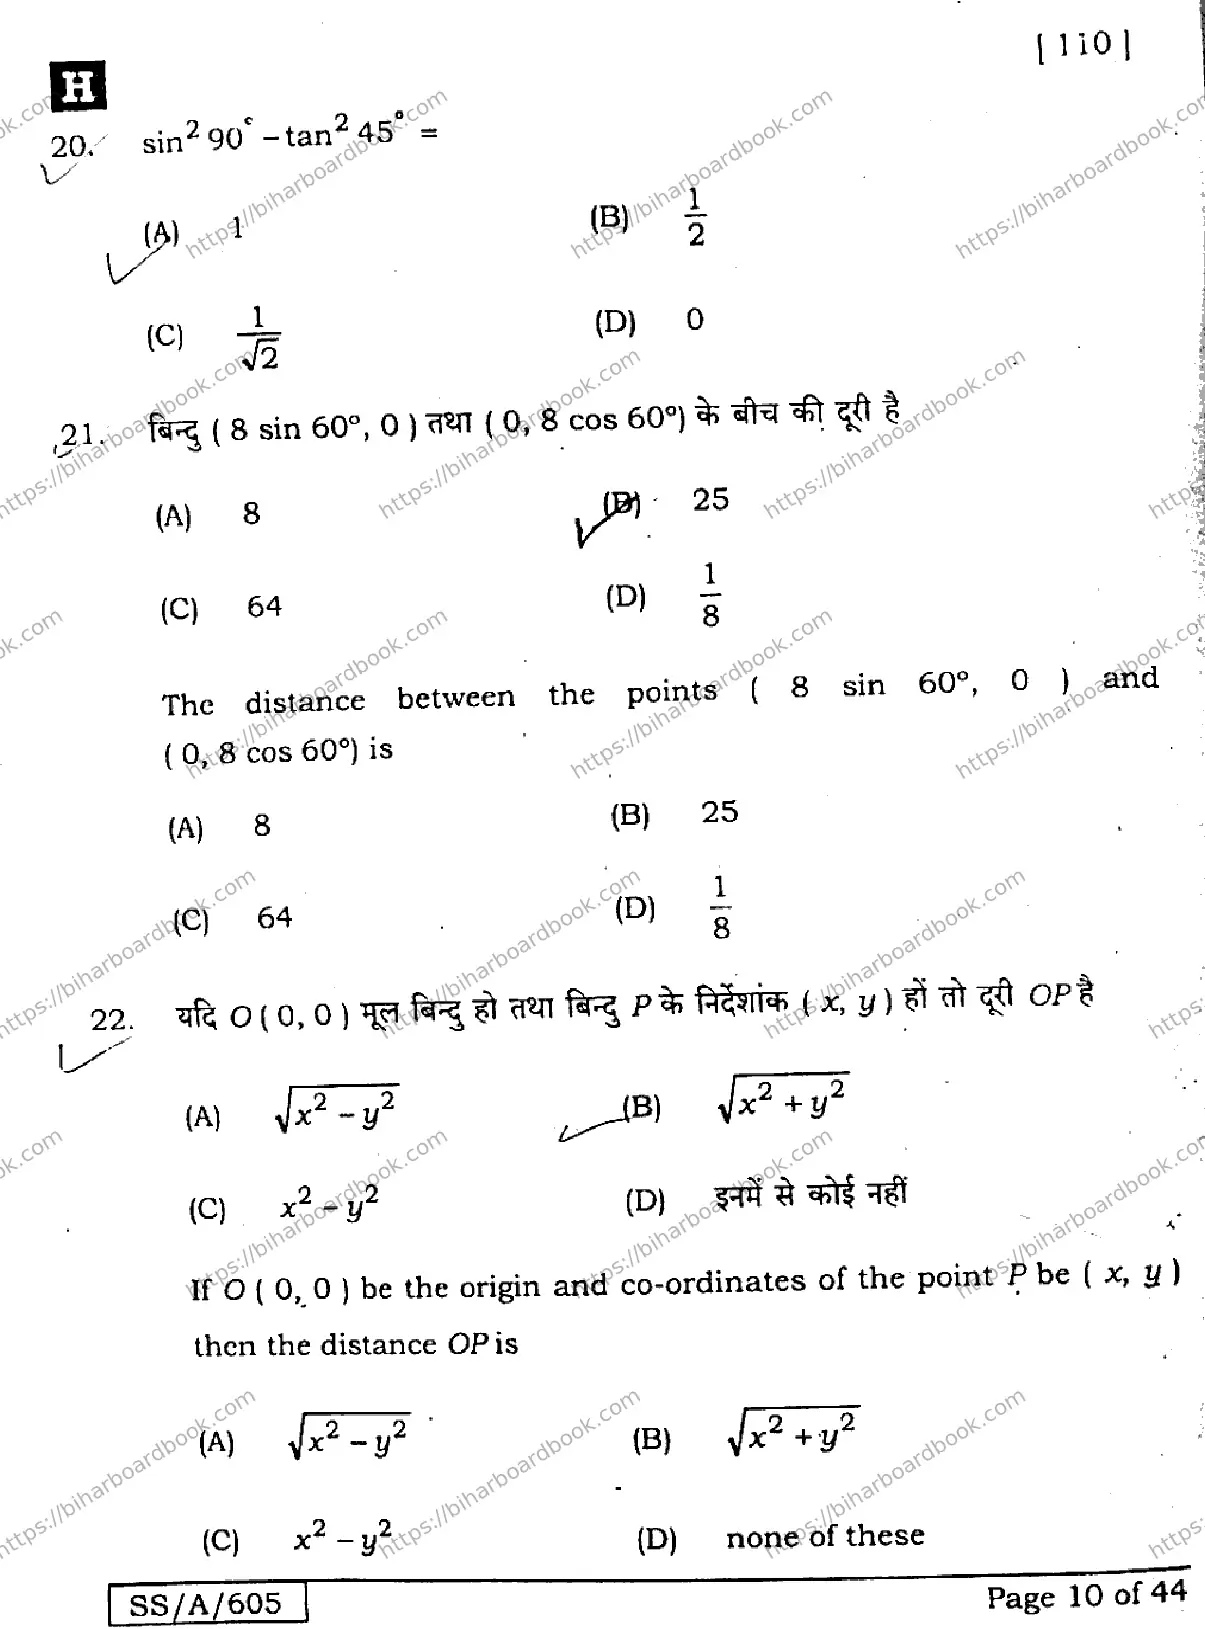 [ 1i0 ]
H
20. sin² 90° – tan² 45° =
(A) 1 (B) 1/2
(C) 1/√2 (D) 0
21. बिन्दु ( 8 sin 60°, 0 ) तथा ( 0, 8 cos 60°) के बीच की दूरी है
(A) 8 (B) 25
(C) 64 (D) 1/8
The distance between the points ( 8 sin 60°, 0 ) and
( 0, 8 cos 60°) is
(A) 8 (B) 25
(C) 64 (D) 1/8
22. यदि O ( 0, 0 ) मूल बिन्दु हो तथा बिन्दु P के निर्देशांक ( x, y ) हों तो दूरी OP है
(A) √(x² – y²) (B) √(x² + y²)
(C) x² – y² (D) इनमें से कोई नहीं
If O ( 0, 0 ) be the origin and co-ordinates of the point P be ( x, y )
then the distance OP is
(A) √(x² – y²) (B) √(x² + y²)
(C) x² – y² (D) none of these
SS/A/605 Page 10 of 44
https://biharboardbook.com